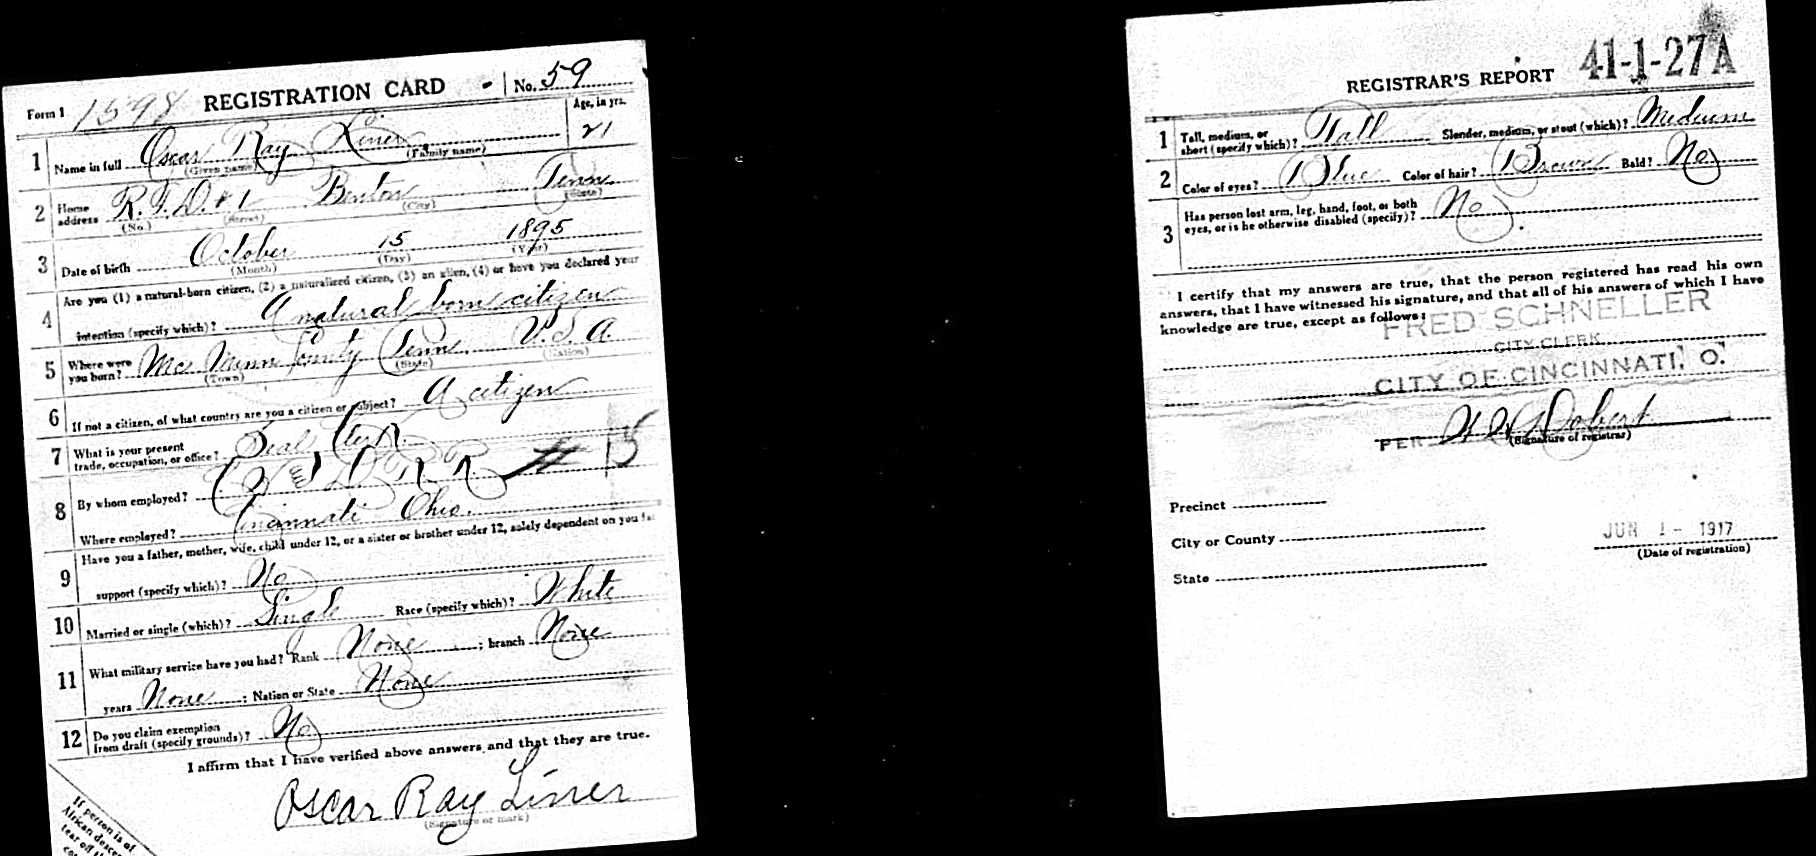 Form 1 1598 REGISTRATION CARD No. 59
Age, in yrs.
1 Name in full Oscar Ray Liner 21
(Given name) (Family name)
2 Home address R.F.D. #1 Benton Tenn
(No.) (Street) (City) (State)
3 Date of birth October 15 1895
(Month) (Day) (Year)
Are you (1) a natural-born citizen, (2) a naturalized citizen, (3) an alien, (4) or have you declared your
4 intention (specify which)? A natural born citizen
5 Where were you born? Mc Minn County Tenn. U.S.A.
(Town) (State) (Nation)
6 If not a citizen, of what country are you a citizen or subject? A citizen
7 What is your present trade, occupation, or office? Seal Clerk
8 By whom employed? R R # 15
Where employed? Cincinnati Ohio.
Have you a father, mother, wife, child under 12, or a sister or brother under 12, solely dependent on you for
9 support (specify which)? No
10 Married or single (which)? Single Race (specify which)? White
11 What military service have you had? Rank None ; branch None
years None ; Nation or State None
12 Do you claim exemption from draft (specify grounds)? No
I affirm that I have verified above answers and that they are true.
Oscar Ray Liner
(Signature or mark)
If person is of
African descent
tear off
REGISTRAR'S REPORT 41-1-27A
1 Tall, medium, or short (specify which)? Tall Slender, medium, or stout (which)? Medium
2 Color of eyes? Blue Color of hair? Brown Bald? No
3 Has person lost arm, leg, hand, foot, or both eyes, or is he otherwise disabled (specify)? No
I certify that my answers are true, that the person registered has read his own
answers, that I have witnessed his signature, and that all of his answers of which I have
knowledge are true, except as follows:
FRED SCHNELLER
CITY CLERK
CITY OF CINCINNATI, O.
PER
(Signature of registrar)
Precinct
City or County
JUN 1 - 1917
(Date of registration)
State